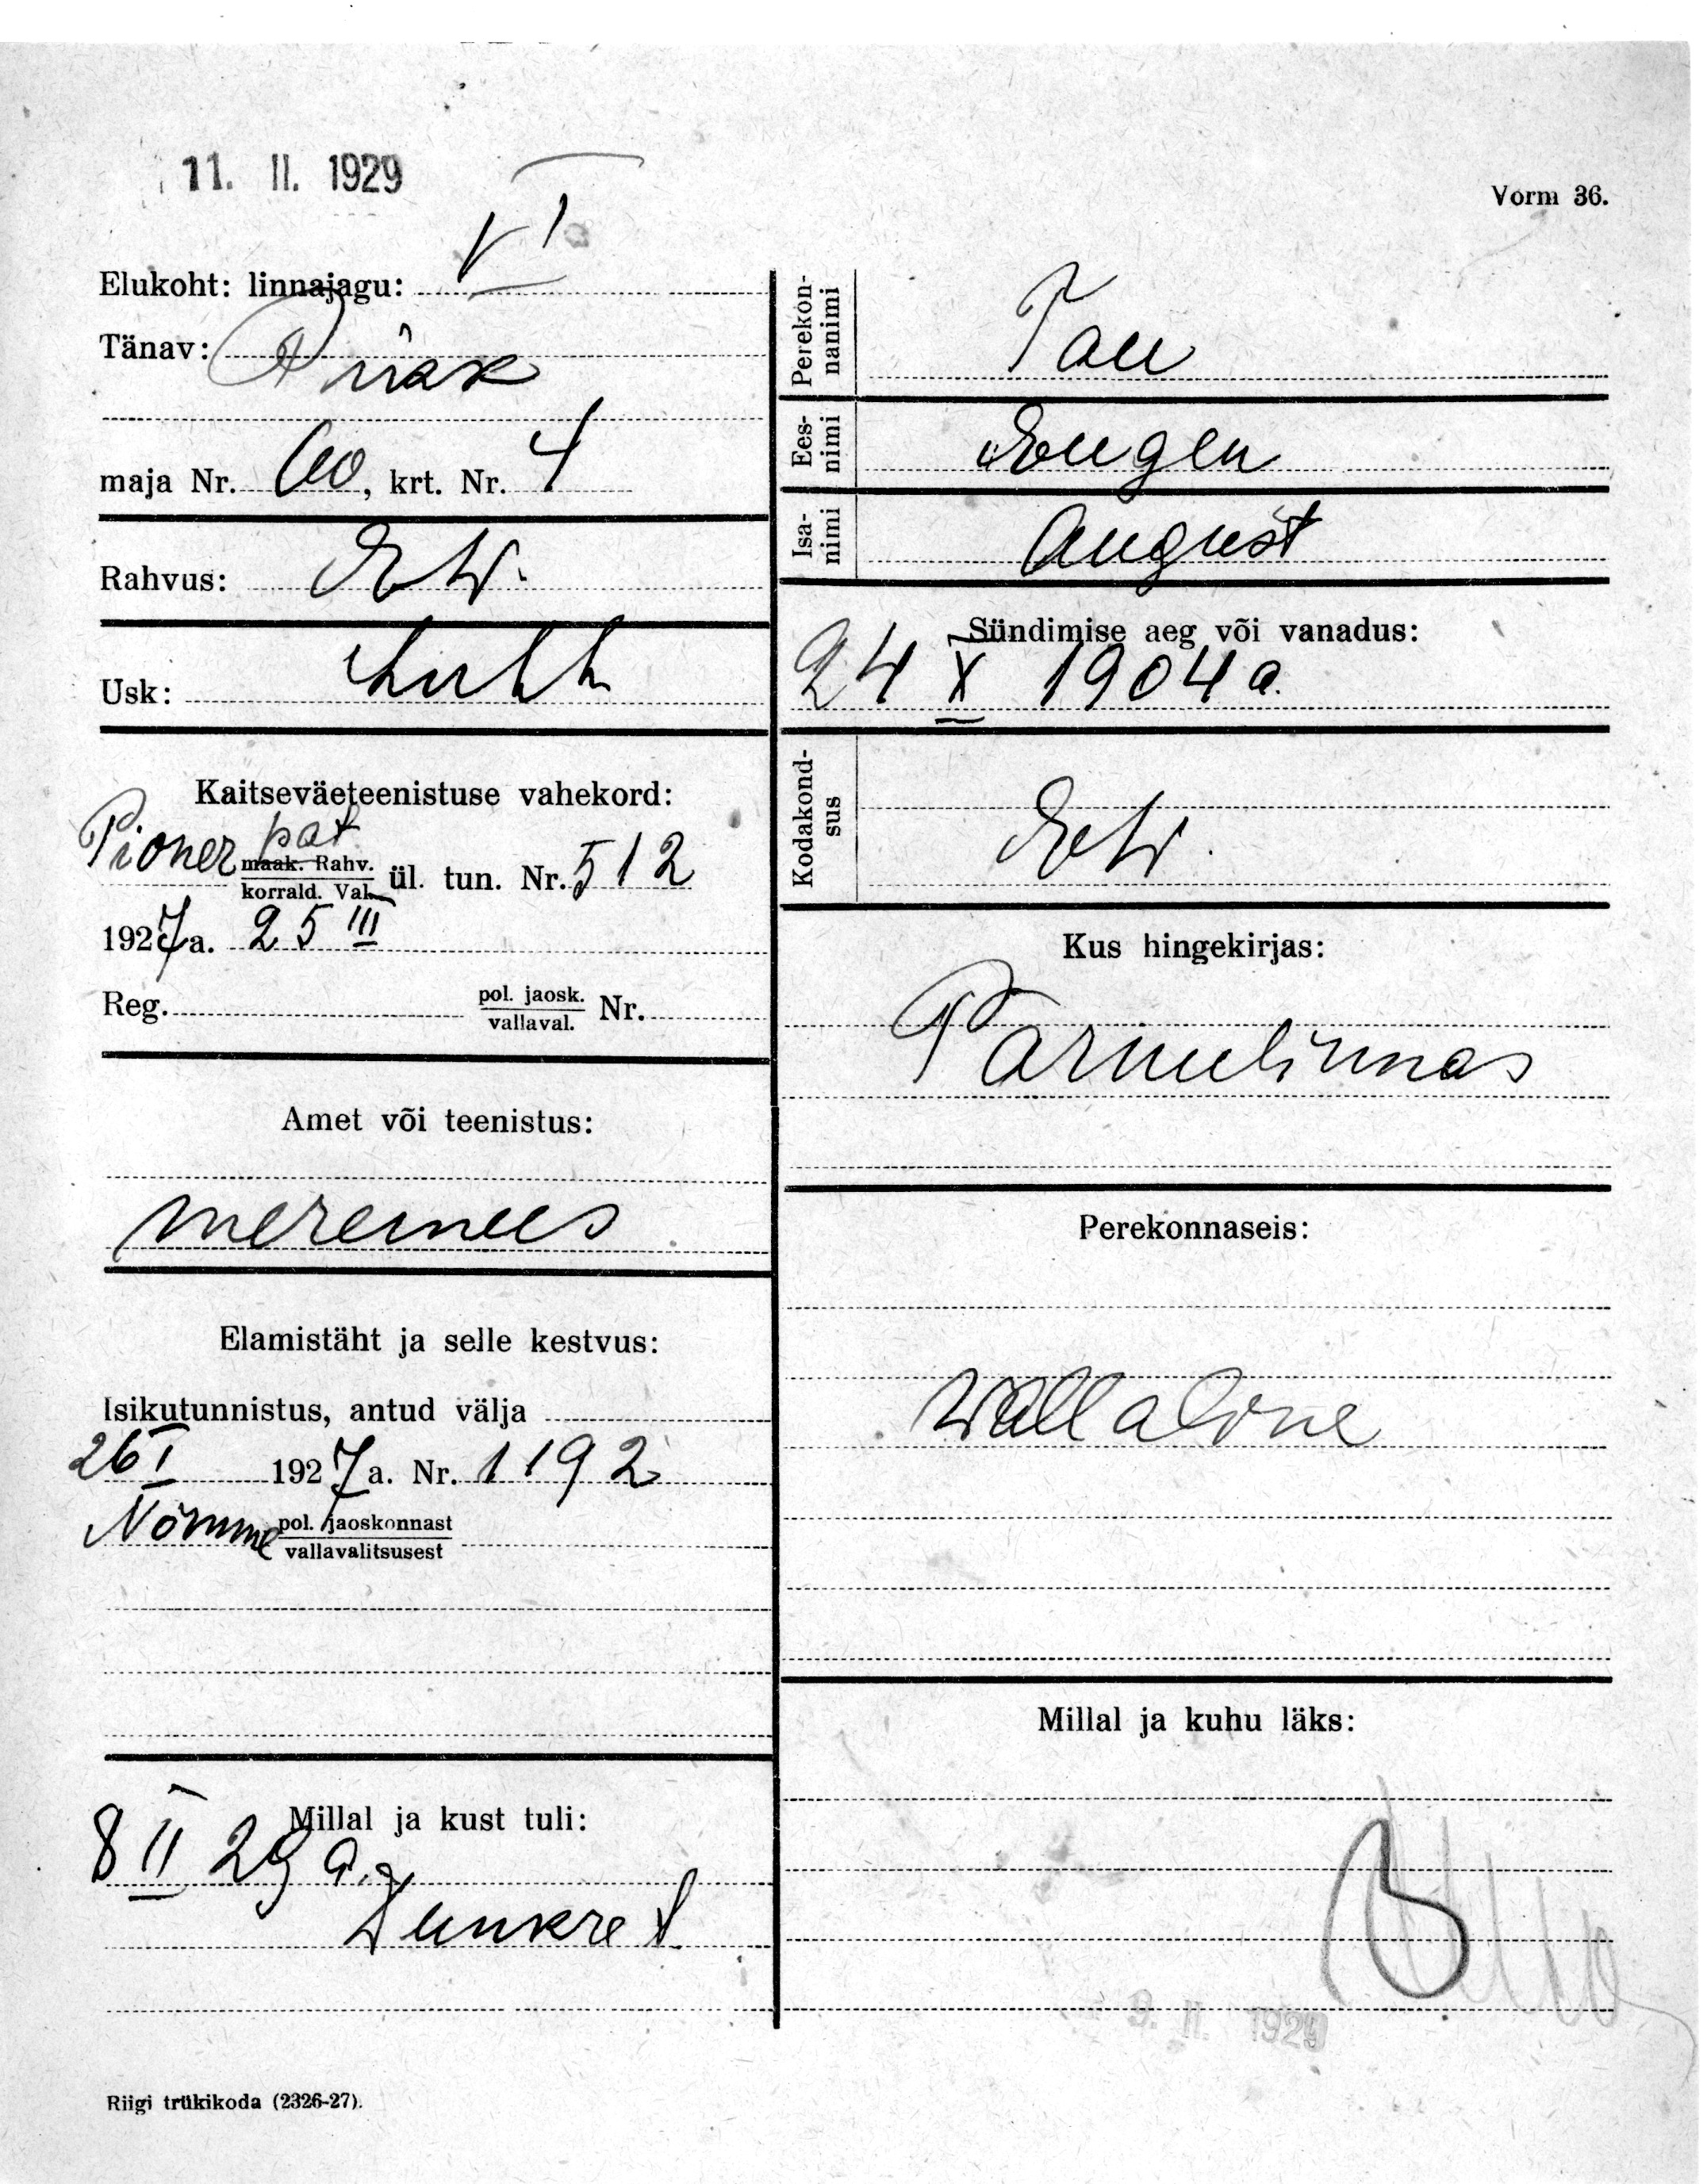 11. II. 1929
Vorm 36.
Elukoht: linnajagu: VI
Tänav:
maja Nr. 60, krt. Nr. 4
Rahvus: Est.
Usk: Luth
Kaitseväeteenistuse vahekord:
Pioner pat
maak. Rahv.
korrald. Val. ül. tun. Nr. 512
1927 a. 25 III
Reg. pol. jaosk. Nr.
vallaval.
Amet või teenistus:
meremees
Elamistäht ja selle kestvus:
Isikutunnistus, antud välja
26 I 1927 a. Nr. 1192
Nõmme pol. jaoskonnast
vallavalitsusest
Millal ja kust tuli:
8 II 29 a.
Riigi trükikoda (2326-27).
Perekon-
nanimi Tau
Ees-
nimi Eugen
Isa-
nimi August
Sündimise aeg või vanadus:
24 X 1904 a.
Kodakond-
sus Est.
Kus hingekirjas:
Pärnulinnas
Perekonnaseis:
Wallaline
Millal ja kuhu läks:
9. II. 1929